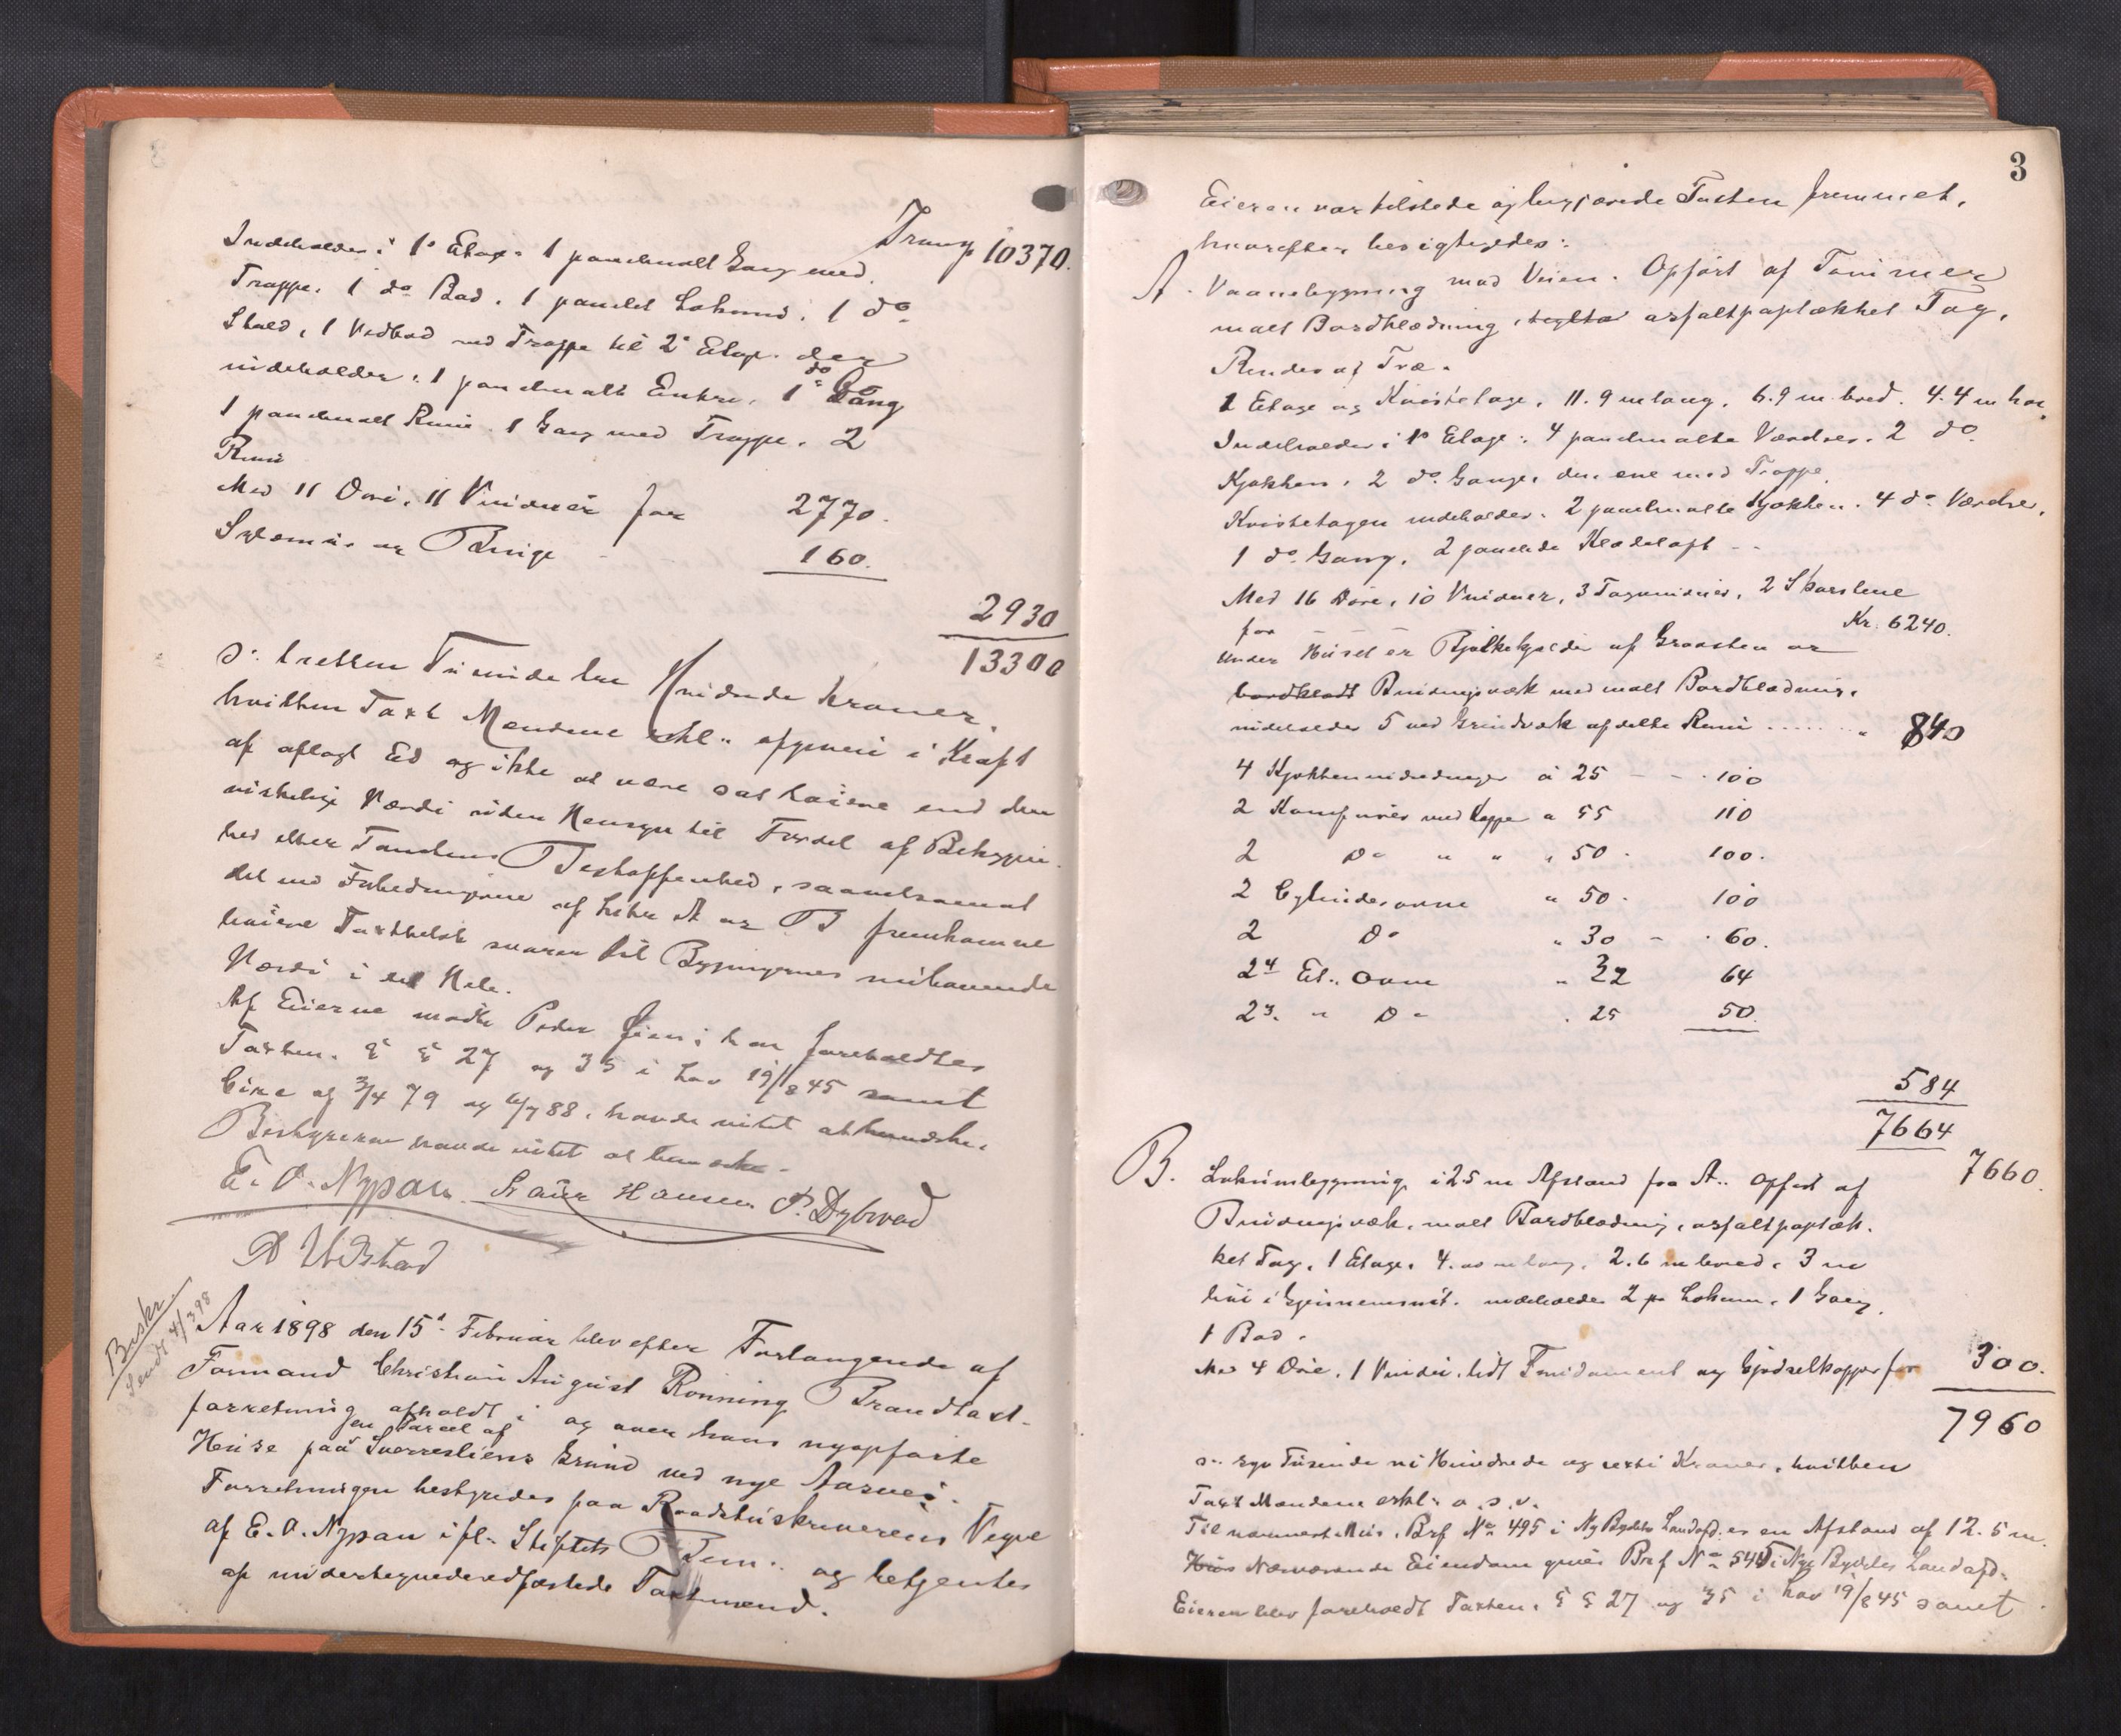 Transp 10370.
Indeholder i 1e Etage: 1 panelmalt Gang med
Trappe. 1 do Bod. 1 panelet Lokum. 1 do
Stald, 1 Vedbod med Trappe til 2e Etage der
indeholder: 1 panelmalt Entre, 1 do Gang
1 panelmalt Rum. 1 Gang med Trappe. 2
Rum
Med 11 Døre, 11 Vinduer for 2770.
Svømur og Binge 160.
2930
13300
d: tretten Tusinde tre Hundrede Kroner,
hvilken Taxt Mændene erkl. afgiven i Kraft
af aflagt Ed og ikke at være sat høiere end den
virkelige Værdi uden Hensyn til Fordel af Beliggen-
hed eller Tomtens Beskaffenhed, saavelsomat
det ved Forbedringerne af Litr A og B fremkomne
høiere Taxtbeløb svarer til Bygningernes nuhavende
Værdi i det Hele.
Af Eierne mødte Peder Øien; han foreholdtes
Taxten. § § 27 og 35 i Lov 19/8 45 samt
Circ af 3/4 79 og 6/7 88. havde intet at bemærke.
Bestyreren havde intet at bemærke.
E. O. Nypan. Laur Hansen. P. Dybvad
A Udbstad
Beskr.
Sendt 4/3 98
Aar 1898 den 15d Februar blev efter Forlangende af
Formand Christian August Rønning Brandtaxt-
forretning afholdt i og over hans nyopførte
Huse paa en Parcel af Sverresliens Grund ved nye Aasvei.
Forretningen bestyredes paa Raadstuskriverens Vegne
af E. O. Nypan ifl. Stiftets Bem. og betjentes
af undertegnede edfæstede Taxtmænd.
3
Eieren var tilstede og begjærede Taxten fremmet,
hvorefter besigtigedes:
A. Vaanebygning mod Veien. Opført af Tømmer
malt Bordklædning, asfaltpaptækket Tag,
Render af Træ.
1 Etage og Kvistetage, 11.9 m lang, 6.9 m bred. 4.4 m høi,
Indeholder i 1e Etage: 4 panelmalte Værelser. 2 do
Kjøkken, 2 do Gange, den ene med Trappe.
Kvistetagen indeholder: 2 panelmalte Kjøkken. 4 do Værelser,
1 do Gang, 2 panelede Klædeloft
Med 16 Døre, 10 Vinduer, 3 Tagvinduer, 2 Skorstene
for Kr. 6240.
Under Huset er Bjelkekjelder af Graasten og
bordklædt Bindingsværk med malt Bordklædning,
indeholder 5 ved Grindværk afdelte Rum ...... " 840
4 Kjøkkenindredninger à 25 - - 100
2 Komfurer med Kappe à 55 110
2 Do " " " 50 - 100.
2 Cylinderovne " 50 - 100
2 Do " 30 - 60.
2 4 Et. Ovne " 32 64
2 3 " Do " 25 50.
584
7664
7660.
B. Lokumbygning i 25 m Afstand fra A. Opført af
Bindingsværk, malt Bordklædning, asfaltpaptæk-
ket Tag, 1 Etage, 4.00 m lang, 2.6 m bred, 3 m
høi i Gjennemsnit. indeholder 2 p. Lokum, 1 Gang,
1 Bod.
Med 4 Døre, 1 Vindu, lidt Fundament og Gjødselkopper for 300.
7960
d: syv Tusinde ni Hundrede og sexti Kroner, hvilken
Taxt Mændene erkl. o. s. v.
Til nærmeste Hus, Brf No 495 i Ny Bydels Landafd. er en Afstand af 12.5 m.
Nærværende Eiendom gives Brf No 541 i Nye Bydeles Landafd.
Eieren blev foreholdt Taxten, § § 27 og 35 i Lov 19/8 45 samt